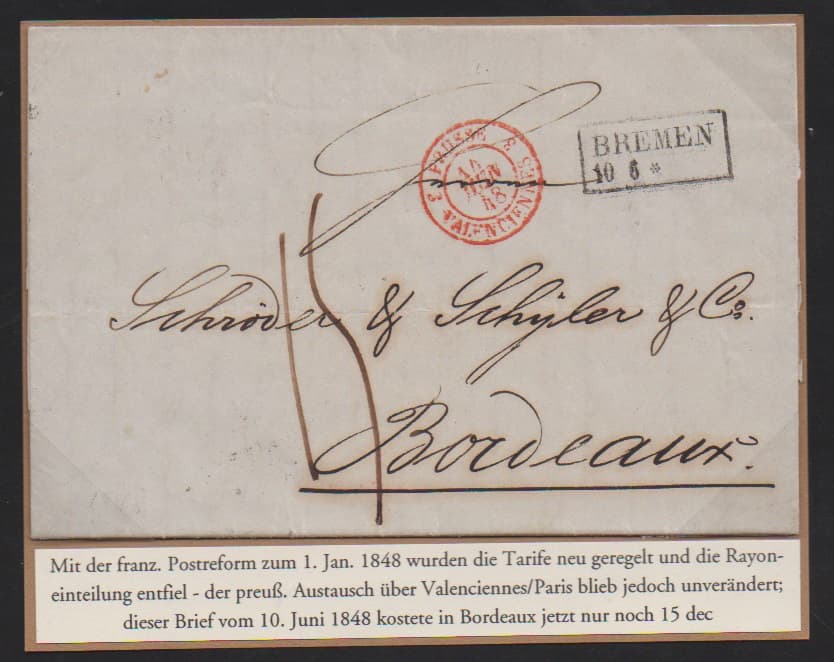 PRUSSE 3
14
JUIN
48
3 VALENCIENNES 3
BREMEN
10 6 *
15
Schröder & Schÿler & Co.
Bordeaux.
Mit der franz. Postreform zum 1. Jan. 1848 wurden die Tarife neu geregelt und die Rayon-
einteilung entfiel - der preuß. Austausch über Valenciennes/Paris blieb jedoch unverändert;
dieser Brief vom 10. Juni 1848 kostete in Bordeaux jetzt nur noch 15 dec